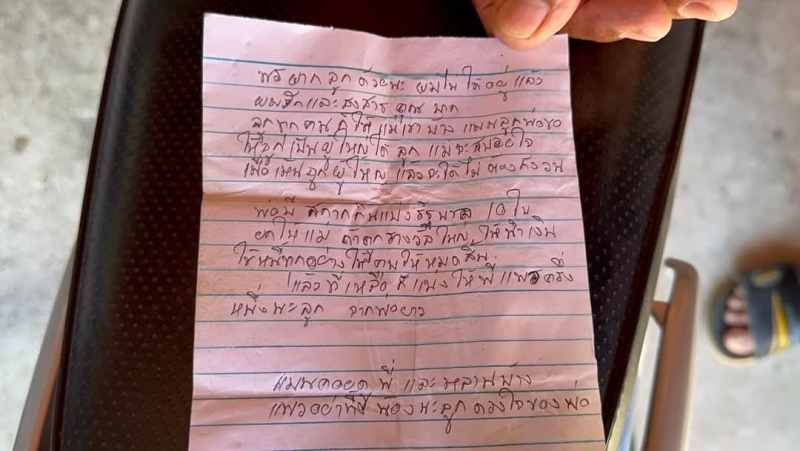 ฟรี ฝาก ลูก ด้วยนะ ผมไม่ ได้อยู่ แล้ว
ผมรักและสงสาร คุณ มาก
ลูกทุกคน ให้ แม่เขา นะ แพนลูกพ่อขอ
ให้ลูกเป็นผู้ใหญ่ได้ ลูก แม่จะสบายใจ
เมื่อเห็น ลูกผู้ใหญ่ แล้วจะได้ไม่ ต้องกังวน
พ่อมี สลากกินแบ่งรัฐบาล 10 ใบ
ยกให้ แม่ ถ้าถูกรางวัลใหญ่ ให้นำเงิน
ใช้หนี้ทุกอย่างให้ ให้หมดสิ้น
แล้ว ที่ เหลือ ก็ แบ่งให้พี่ แพรครึ่ง
หนึ่งนะลูก จากพ่อยาว
แพนคอยดู พี่ และ หลานบ้าง
แพรอย่าทิ้ง น้องนะลูก ดวงใจของพ่อ